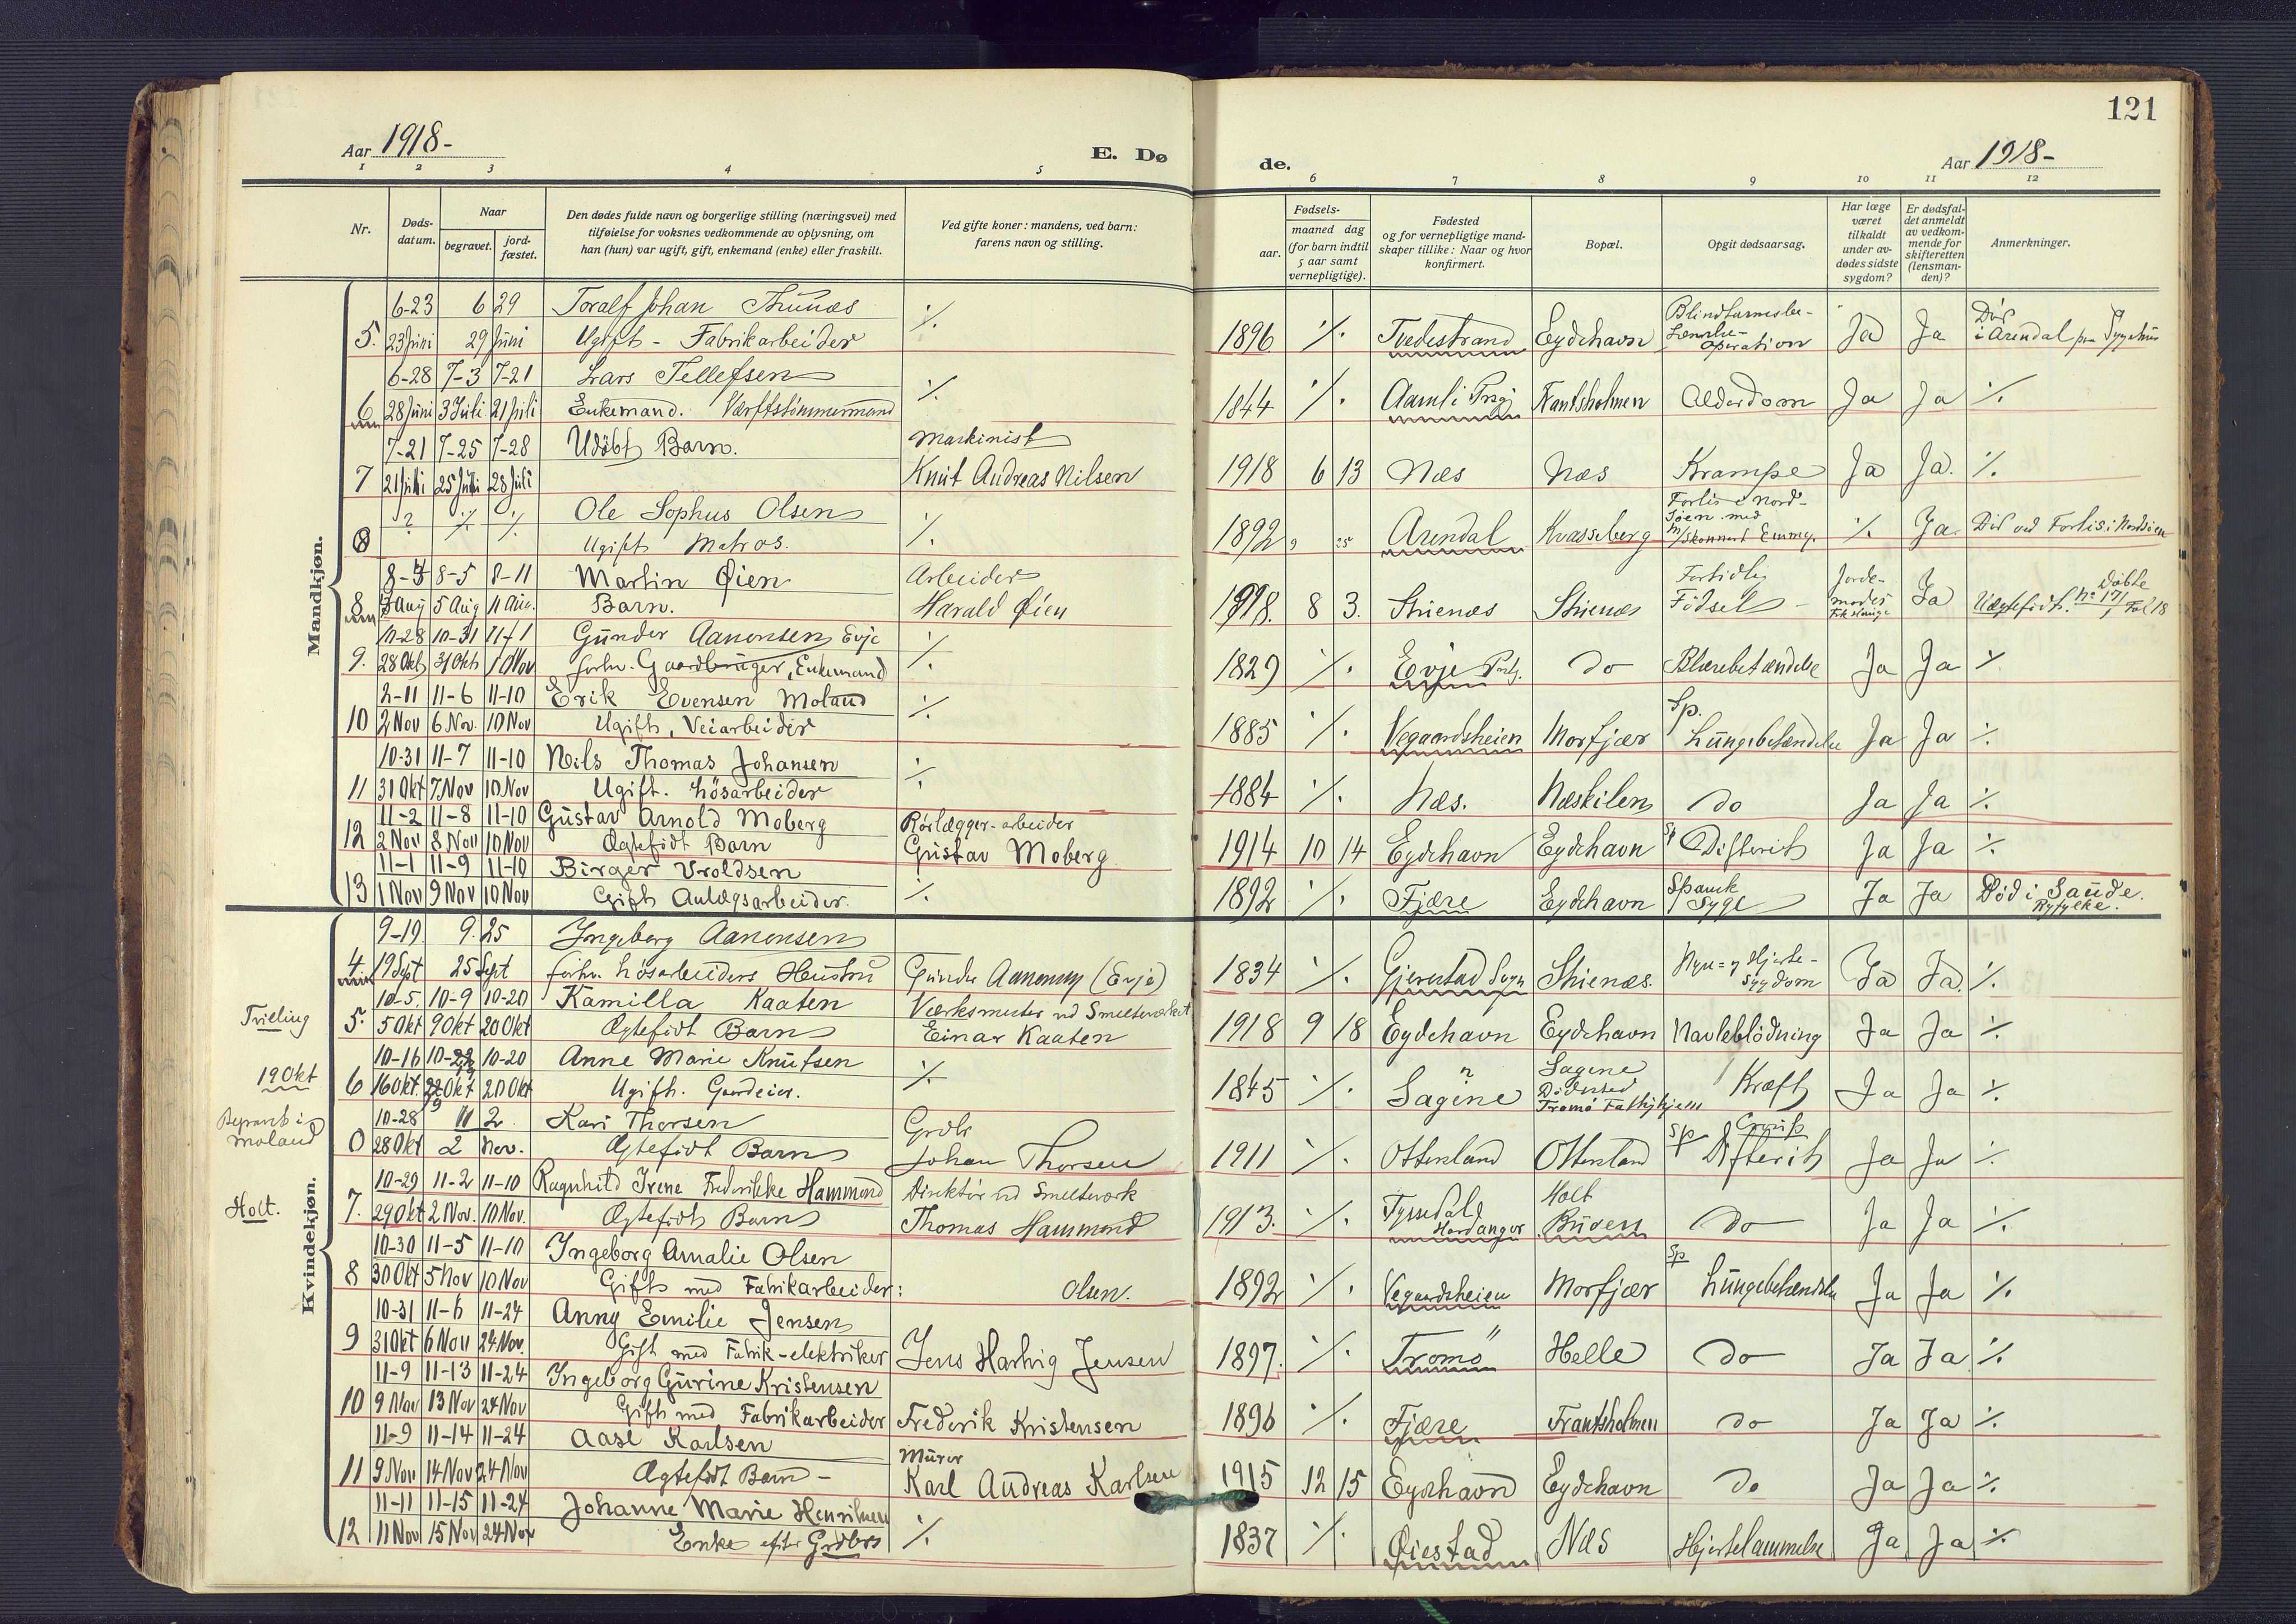 121
Aar 1918-
E. Dø
de.
Aar 1918-
1 2 3 4 5 6 7 8 9 10 11 12
Nr.
Døds-
datum.
Naar
begravet.
jord-
fæstet.
Den dødes fulde navn og borgerlige stilling (næringsvei) med
tilføielse for voksnes vedkommende av oplysning, om
han (hun) var ugift, gift, enkemand (enke) eller fraskilt.
Ved gifte koner: mandens, ved barn:
farens navn og stilling.
Fødsels-
aar.
maaned dag
(for barn indtil
5 aar samt
vernepligtige).
Fødested
og for vernepligtige mand-
skaper tillike: Naar og hvor
konfirmert.
Bopæl.
Opgit dødsaarsag.
Har læge
været
tilkaldt
under av-
dødes sidste
sygdom?
Er dødsfal-
det anmeldt
av vedkom-
mende for
skifteretten
(lensman-
den)?
Anmerkninger.
Mandkjøn.
6-23 6 29 Toralf Johan Thunæs ٪
5. 23 Juni 29 Juni Ugift - Fabrikarbeider
1896 ٪ Tvedestrand Eydehavn Blindtarmsbe-
tændelse-
operation Ja Ja Död
i Arendal paa Sygehus
6-28 7-3 7-21 Lars Tellefsen ٪
6 28 Juni 3 Juli 21 Juli Enkemand. Værftstömmermand
1844 ٪ Aamli Prgj Frantsholmen Alderdom Ja Ja ٪
7-21 7-25 7-28 Udöbt Barn. Maskinist
7 21 Juli 25 Juli 28 Juli Knut Andreas Nilsen
1918 6 13 Næs Næs Krampe Ja Ja. ٪
? ٪ ٪ Ole Sophus Olsen ٪
Ugift Matros.
1892 9 25 Arendal Kvasseberg Forlis i Nord-
sjøen med
M/Skonnert Emmy. ٪ Ja. Död ved Forlis i Nordsjøen
8-3 8-5 8-11 Martin Øien Arbeider
8 3 Aug 5 Aug 11 Aug. Barn. Harald Øien
1918. 8 3. Strenæs Strenæs Fortidlig
Födsel - Jorde-
moder Ja Uægtefödt. Döbte
No 17 Fol 18
10-28 10-31 11-1 Gunder Aanonsen Evje ٪
9. 28 Okt 31 Okt 1 Nov forhv. Gaardbruger, Enkemand
1829 ٪ Evje Prstj. do Blærebetændelse Ja Ja ٪
2-11 11-6 11-10 Erik Evensen Moland ٪
10 2 Nov 6 Nov. 10 Nov Ugift, Veiarbeider
1885 ٪ Vegaardsheien Morfjær Sp.
Lungebetændelse Ja Ja ٪
10-31 11-7 11-10 Nils Thomas Johansen ٪
11 31 Okt 7. Nov 10 Nov Ugift. Lösarbeider
1884 ٪ Næs. Næskilen do Ja Ja ٪
11-2 11-8 11-10 Gustav Arnold Moberg Rörlægger-arbeider
12 2 Nov 8 Nov 10 Nov Ægtefödt Barn Gustav Moberg
1914 10 14 Eydehavn Eydehavn Sp Difterit Ja Ja ٪
11-1 11-9 11-10 Birger Vroldsen ٪
13 1 Nov 9 Nov 10 Nov Gift Anlægsarbeider.
1892 ٪ Fjære Eydehavn Spansk
Syge Ja Ja Död i Saude.
Ryfylke.
Kvindekjøn.
9-19 9. 25 Ingeborg Aanonsen
4 19 Sept 25 Sept forhv. Lösarbeiders Hustru Gunder Aanonsen (Evje)
1834 ٪ Gjerestad Sogn Strenæs. Nyre= og Hjerte-
sygdom Ja Ja. ٪
10-5. 10-9 10-20 Kamilla Kaaten Værksmester ved Smelteverket
Tvilling 5. 5 Okt 9 Okt 20 Okt Ægtefödt Barn Einar Kaaten
1918 9 18 Eydehavn Eydehavn Navleblödning Ja Ja ٪
10-16 10-22 10-20 Anne Marie Knutsen ٪
19 Okt 6 16 Okt. 22 Okt 20 Okt Ugift. Gaardeier.
1845 ٪ Sagene Sagene
Dödssted
Tromö Fattighjem Kræft Ja Ja ٪
10-28 11 2 Kari Thorsen Gröbr
Begravet i
Moland 0 28 Okt 2 Nov. Ægtefödt Barn Johan Thorsen
1911 ٪ Ottersland Ottersland Sp Croup
Difterit Ja Ja ٪
10-29 11-2 11-10 Ragnhild Irene Frederikke Hammond Direktör ved Smelteverk
Holt. 7. 29 Okt 2 Nov. 10 Nov. Ægtefödt Barn Thomas Hammond
1913. ٪ Tyssedal
Hardanger Holt
Buøen do Ja Ja ٪
10-30 11-5 11-10 Ingeborg Amalie Olsen
8 30 Okt 5 Nov 10 Nov Gift med Fabrikarbeider: Olsen.
1892 ٪ Vegaardsheien Morfjær Sp
Lungebetændelse Ja Ja ٪
10-31 11-6 11-24 Anny Emilie Jensen
9 31 Okt 6 Nov 24 Nov. Gift med Fabrik-elektriker Jens Hartvig Jensen
1897. ٪ Tromö Helle do Ja Ja ٪
11-9 11-13 11-24 Ingeborg Gurine Kristensen
10 9 Nov 13 Nov 24 Nov Gift med Fabrikarbeider Frederik Kristensen
1896 ٪ Fjære Frantsholmen do Ja Ja ٪
11-9 11-14 11-24 Aase Karlsen Murer
11 9. Nov 14 Nov 24 Nov Ægtefödt Barn - Karl Andreas Karlsen
1915 12 15 Eydehavn Eydehavn do Ja Ja ٪
11-11 11-15 11-24 Johanne Marie Henriksen
12 11 Nov 15 Nov 24 Nov Enke efter Gröbr ٪
1837 ٪ Øiestad Næs Hjertelammelse Ja Ja ٪